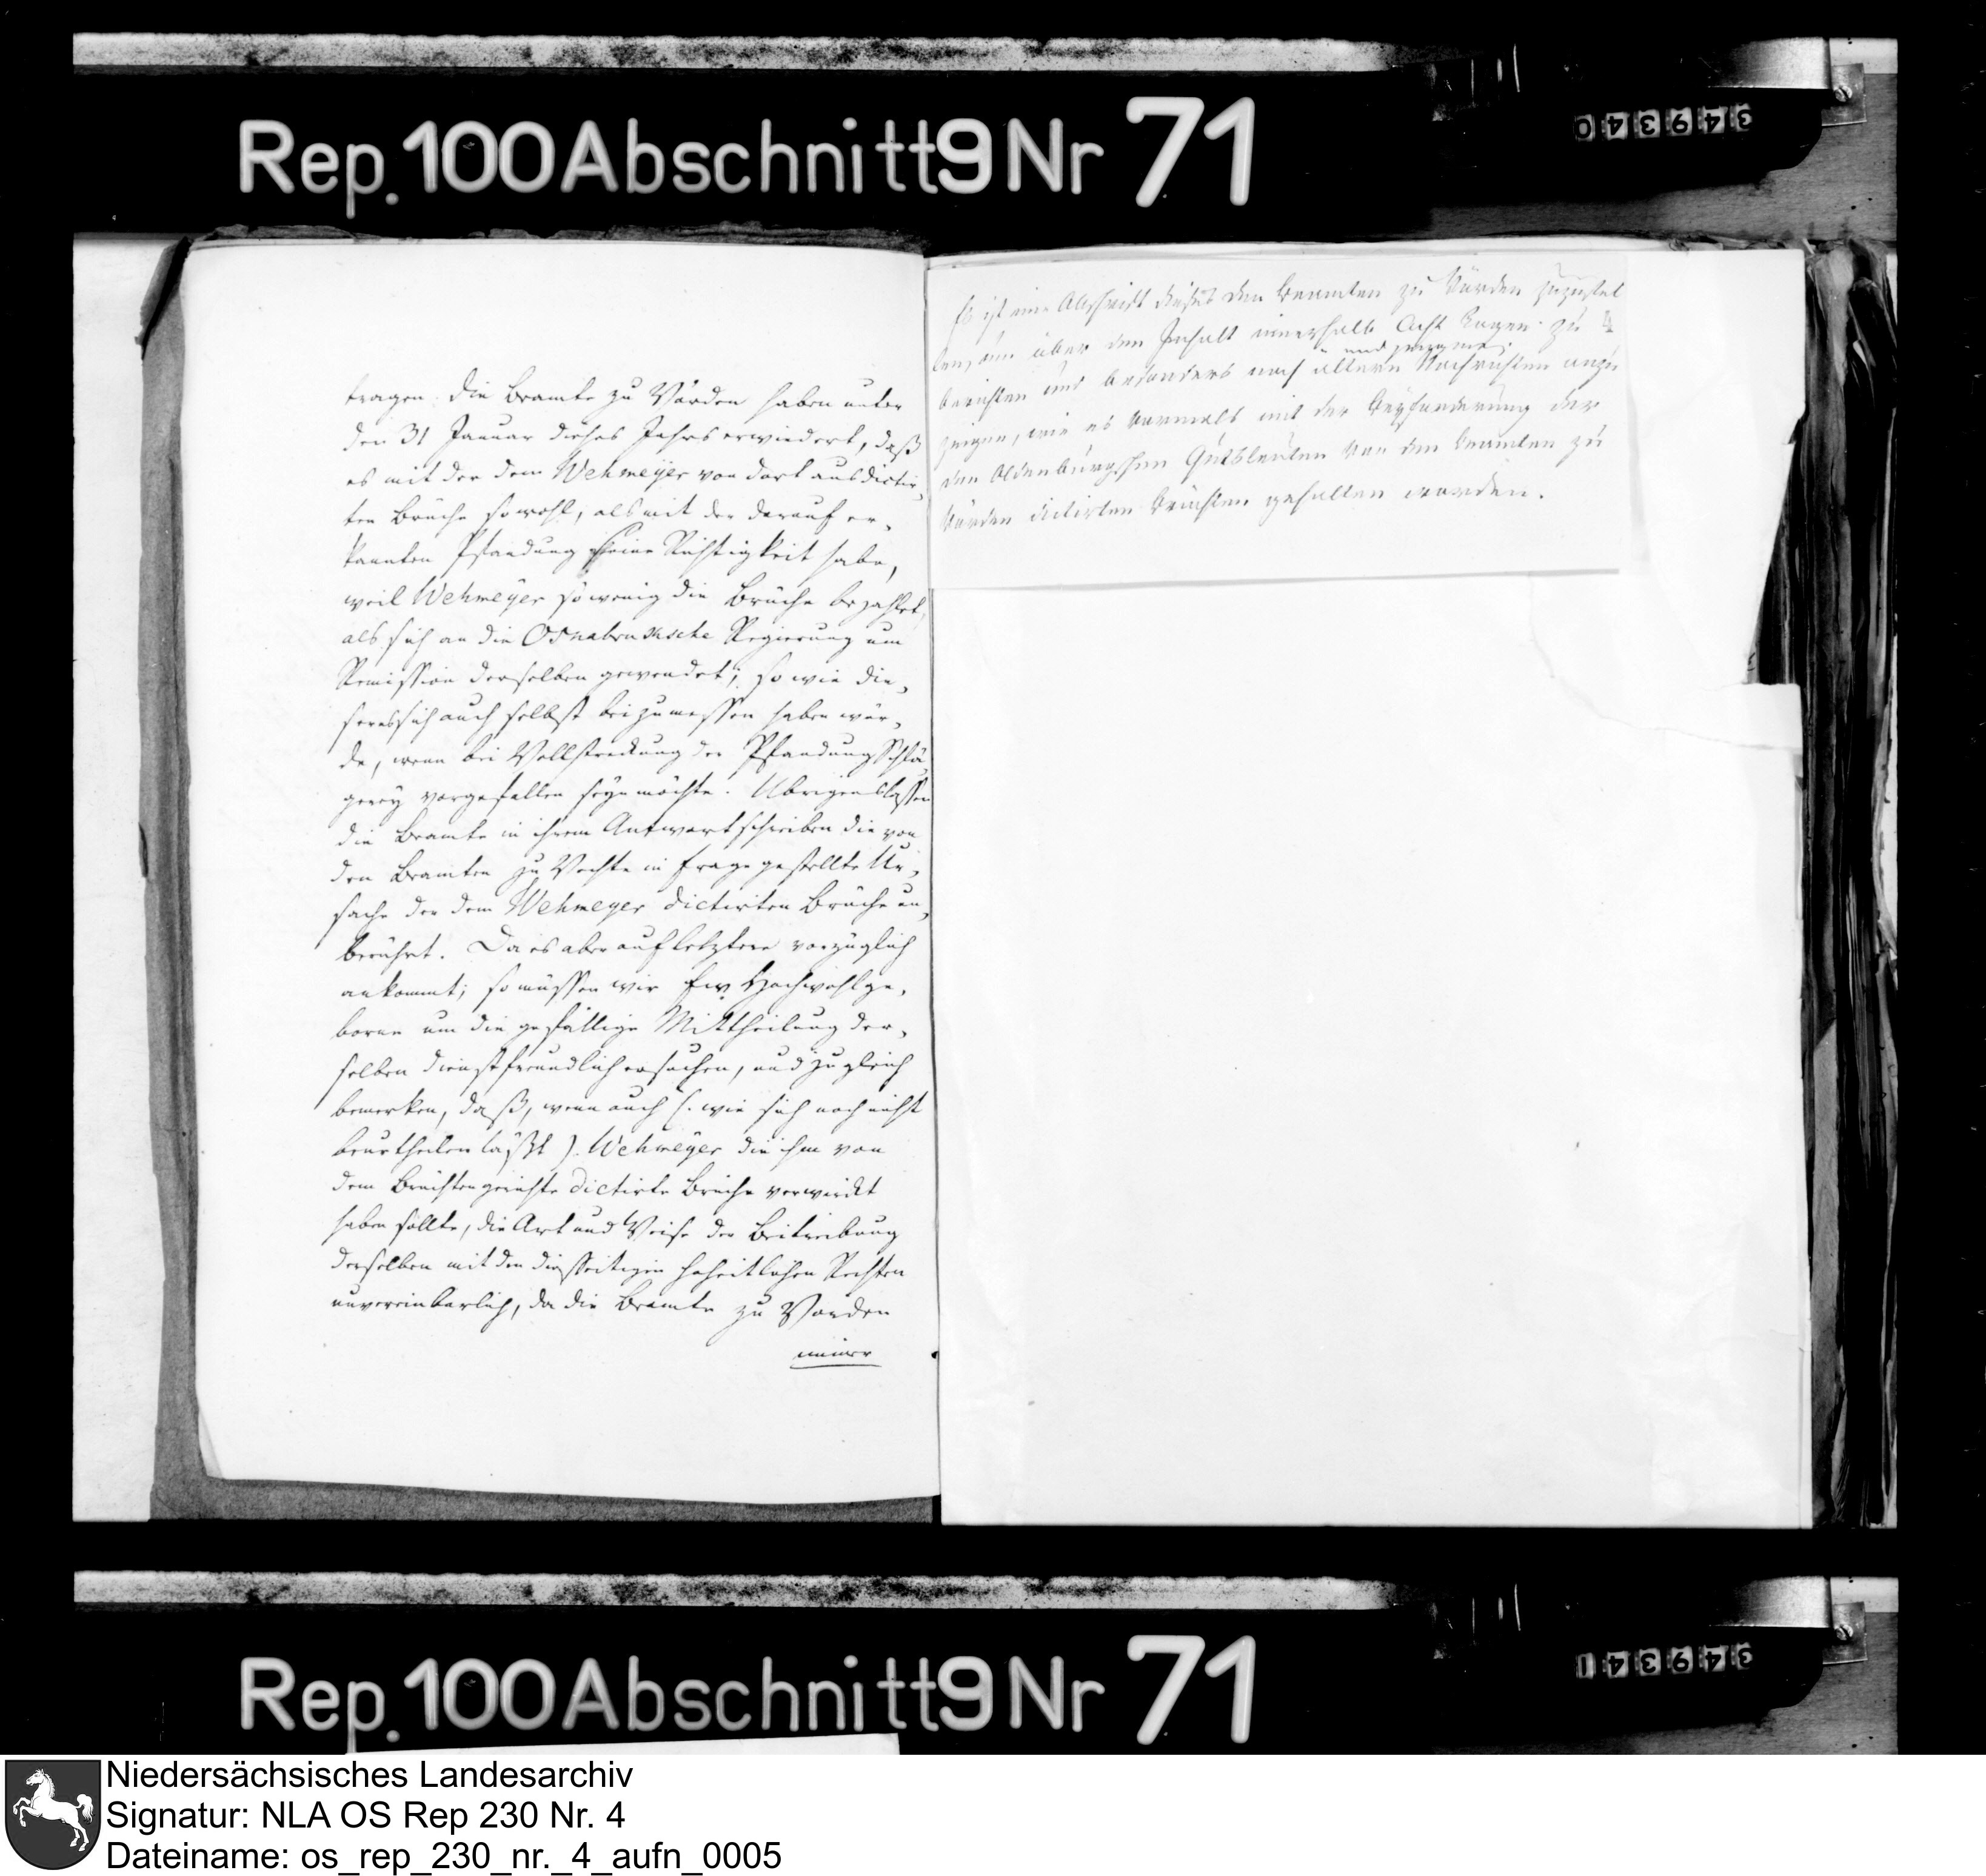 Rep. 100 Abschnitt 9 Nr 71
349340
tragen. Die Beamte zu Vörden haben unter
den 31 Januar dieses Jahrs erwiedert, daß
es mit der dem Wehmeÿer von dort aus dictir-
ten Brüche sowohl, als mit der darauf er-
kannten Pfandung seine Richtigkeit habe,
weil Wehmeÿer so wenig die Brüche bezahlet,
als sich an die Osnabruksche Regierung um
Remission derselben gewendet; so wie die-
ser es sich auch selbst beizumessen haben wür-
de, wenn bei Vollstreckung der Pfandung Schlä-
gereÿ vorgefallen seÿn möchte. Ubrigens lassen
die Beamte in ihrem Antwortschreiben die von
den Beamten zu Vechte in Frage gestellte Ur-
sache der dem Wehmeÿer dictirten Brüche un-
berührt. Da es aber auf letztere vorzüglich
ankommt; so müssen wir Ew. Hochwohlge-
borne um die gefällige Mittheilung der-
selben dienstfreundlich ersuchen, und zugleich
bemerken, daß, wenn auch (. wie sich noch nicht
beurtheilen läßt ). Wehmeÿer die ihm von
dem Brüchtengerichte dictirte Brüche verwirkt
haben sollte, die Art und Weise der Beitreibung
derselben mit den diesseitigen hoheitlichen Rechten
unvereinbarlich, da die Beamte zu Vörden
immer
Es ist eine Abschrift dieses den Beamten zu Vörden zuzustel
len, um über den Inhalt innerhalb Acht Tagen zu
4
berichten und besonders nach ältern Nachrichten anzu
und
zeigen, wie es vormals mit der Auspfanderung der
den Oldenburgschen Gutsleuten von den Beamten zu
Vörden dictirten Brüchten gehalten worden.
Rep. 100 Abschnitt 9 Nr 71
349341
Niedersächsisches Landesarchiv
Signatur: NLA OS Rep 230 Nr. 4
Dateiname: os_rep_230_nr._4_aufn_0005